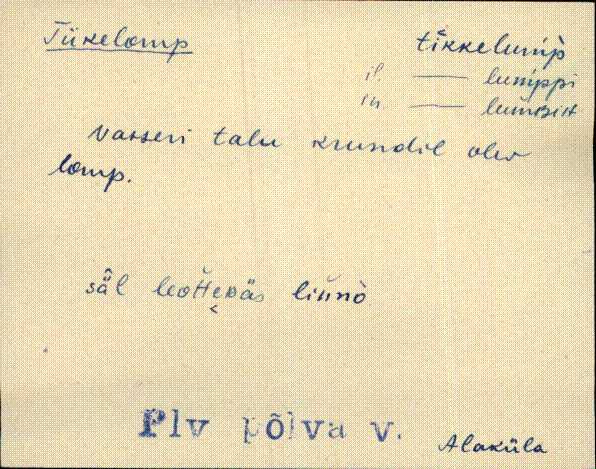 Tiikelomp tikkelump̀
il. — lumppi
in — lumʙiʜ
Vasseri talu krundil olev
lomp.
säl leoᴛᴛeᴅäs linnò
Plv põlva v.
Alaküla